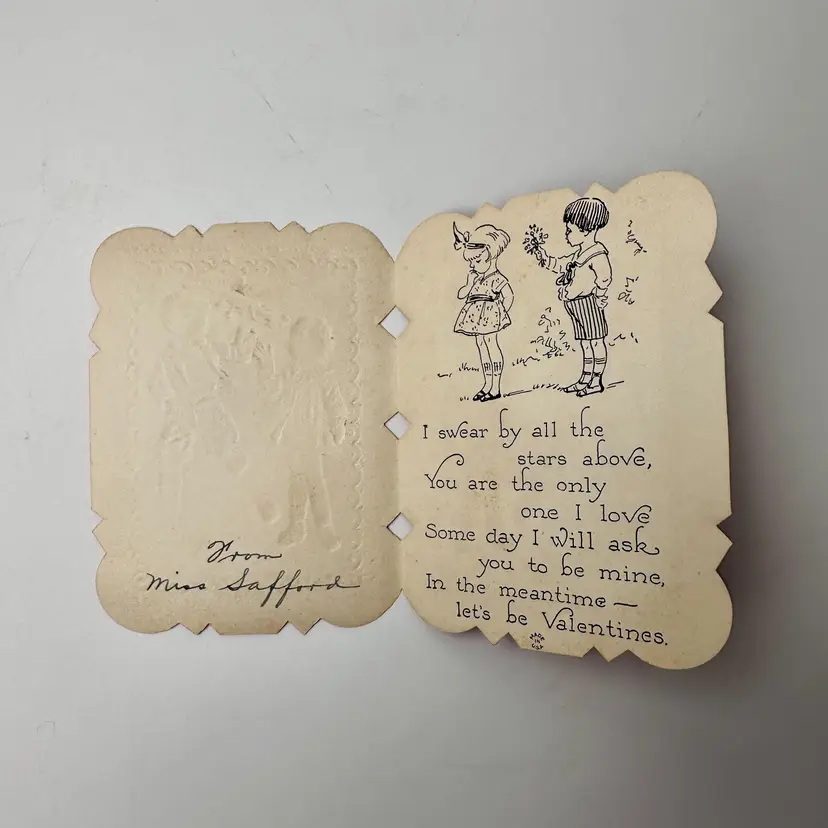 From
Miss Safford
I swear by all the
stars above,
You are the only
one I love
Some day I will ask
you to be mine,
In the meantime —
let's be Valentines.
MADE
IN
USA